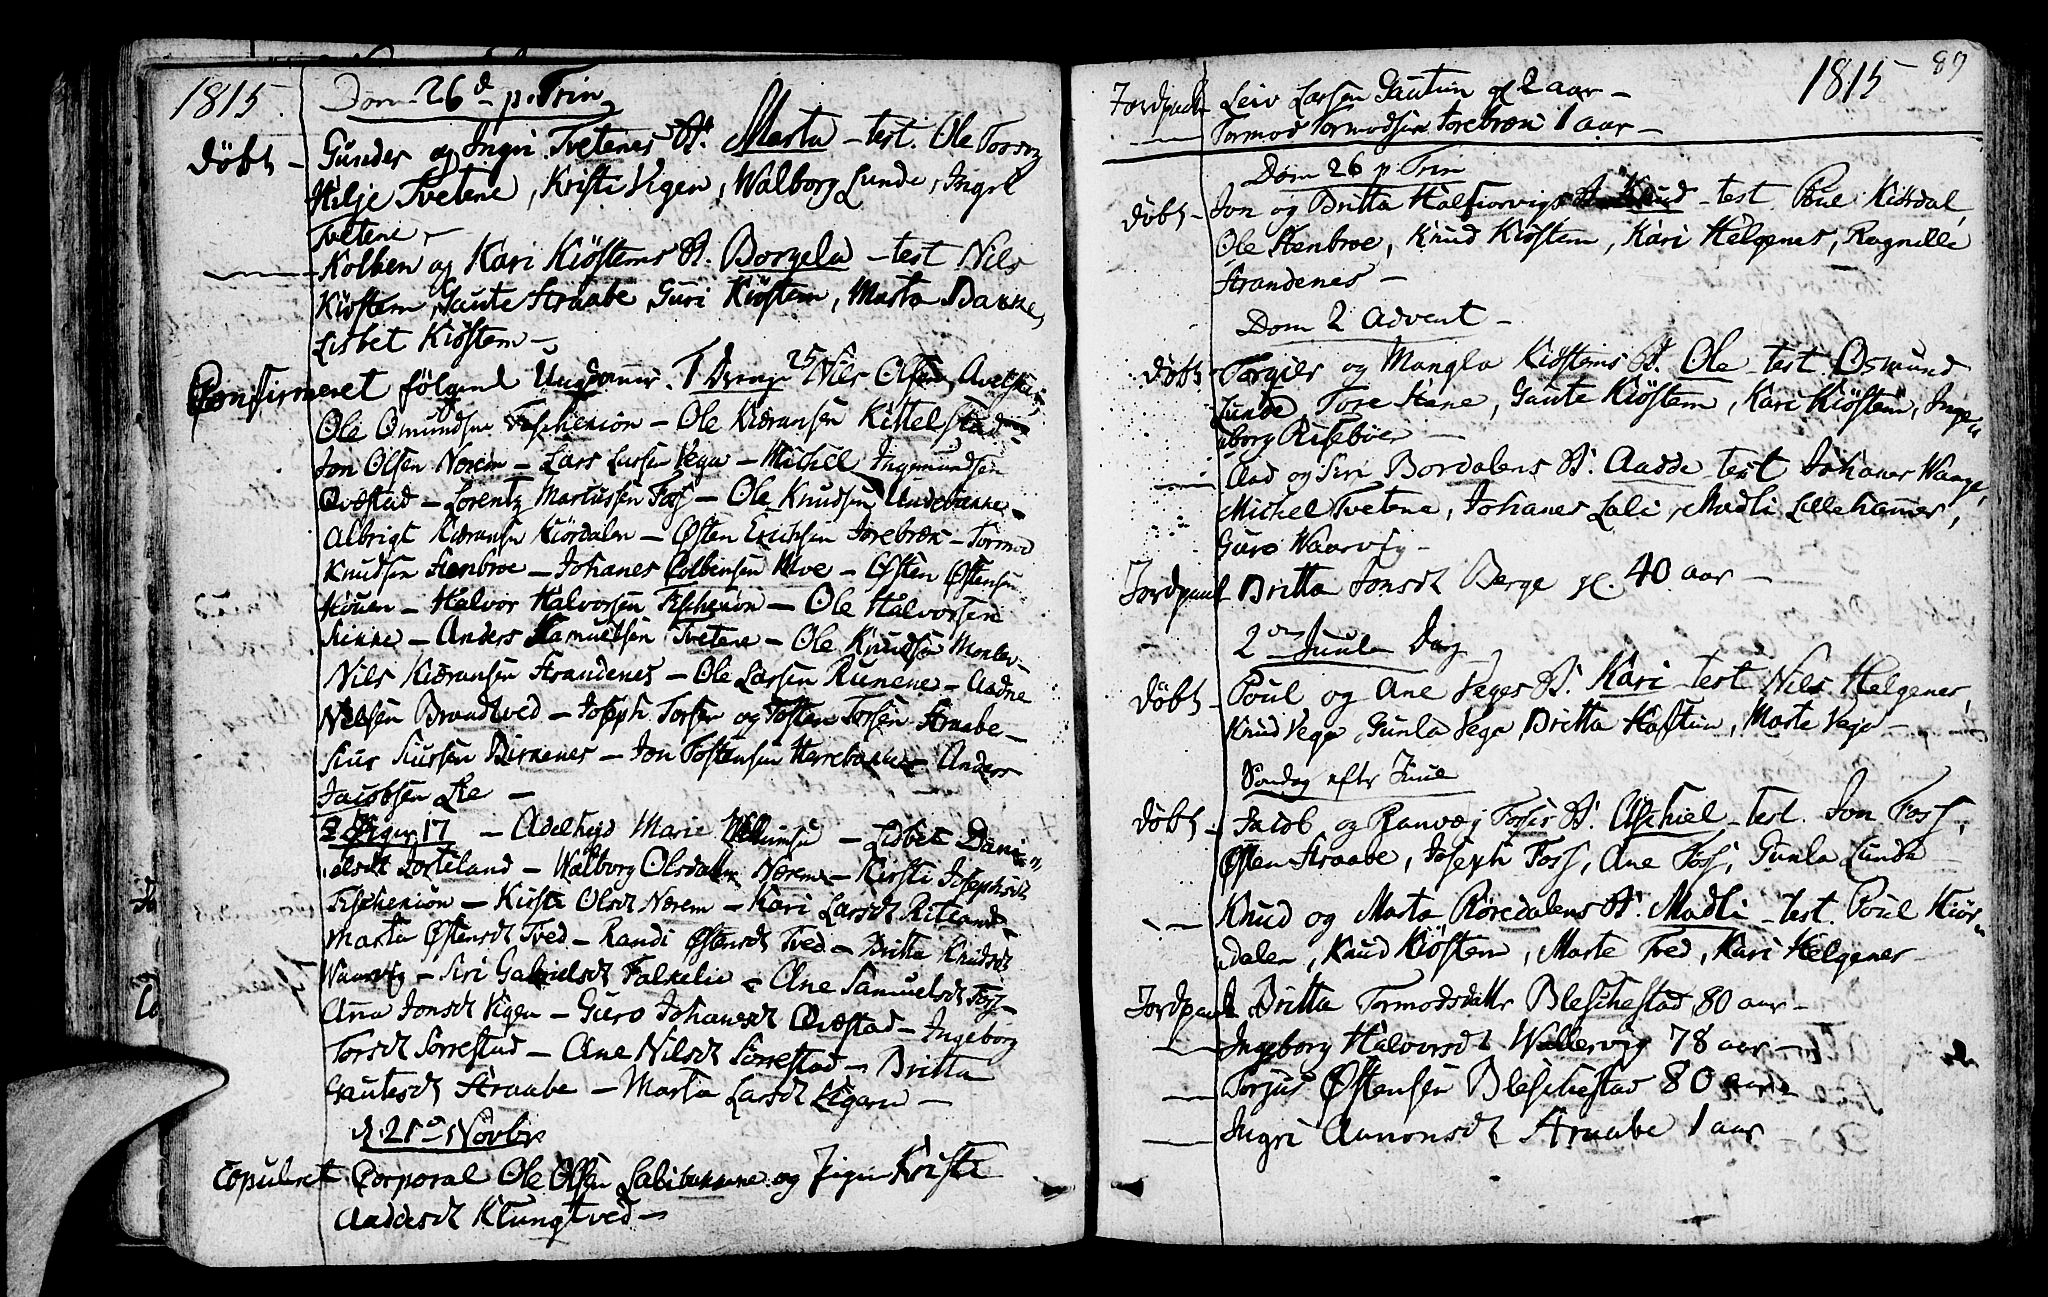 1815.
Dom 26d p. Trin
döbt - Gunder og Ingri Tvetenes B. Marta - test. Ole
Kilje Tvetene, Kristi Vigen, Walborg Lunde, Ingri
Tvetene -
Kolben og Kari Kiöstems B. Borgela - test Nils
Kiöstem, Gaute Straabe, Guri Kiöstem, Marta Bakke,
Lisbet Kiöstem -
Confirmeret fölgend Ungdomer. 1 Drenge 25 Nils Olsen
Ole Omundsen - Ole Kidransen Kittelstad -
Jon Olsen Nerem - Lars Larsen Vega - Michel Ingemundsen
Qvæstad - Lorentz Martussen Foss - Ole Knudsen Undebakke -
Albrigt Kidransen Kiördalen - Østen Erichsen Forebræk - Tormod
Knudsen Stenbroe - Johanes Colbensen Alve - Østen Østensen
Houen - Halvor Halvorsen - Ole Halvorsen
Anders Samuelsen Tvetene - Ole Knudsen
Nils Kidransen Strandenes - Ole Larsen Runene - Aadne
Nilsen Brandtved - Joseph Torsen og Tosten Torsen Straabe -
Siur Siursen Birkenes - Jon Tostensen Herrebakke - Anders
Jacobsen Lie -
2 Piger 17 - Adelheyd Marie - Lisbet Dani"
"elsdt - Walborg Olsdatter Nærem - Kirsti Josephsdt
- Kirsti Olsdt Nærem - Kari Larsdt Riteland -
Marta Østensdt Tved - Randi Østensdt Tved - Britta Knudsdt
Waarvig - Siri Gabrielsdt Falkelie - Ane Samuelsdt Foss -
Ana Jonsdt Vigen - Guro Johanesdt Qvæstad - Ingeborg
Torsdt Sorrestad - Ane Nilsdt Sorrestad - Britta
Gautesdt Straabe - Marta Larsdt
d. 21de Novbr
copuleret Corporal Ole Olsen og Pigen Kristi
Aaddesdt Klungtved -
1815 89
Jordpaak Leiv Larsen Gautun gl 2 aar -
- Tormod Tormodsen Forebræk 1 aar -
Dom 26 p. Trin
döbt - Jon og Britta Halfiorvigs B. Knud - test Poul Kiördal,
Ole Stenbroe, Knud Kiöstem, Kari Helgenes, Ragnilli
Strandenes -
Dom 2 Advent -
döbt - Torgier og Mangla Kiöstems B. Ole - test Osmund
Lunde, Tore Hane, Gaute Kiöstem, Kari Kiöstem, Inge"
"borg Riseboer -
- Aad og Siri Bordalens B. Aadde - test Johanes Wange,
Michel Tvetene, Johanes Lali, Madli Lillehammer,
Guro Waarvig -
Jordpaak Britta Jonsdt Berge gl. 40 aar -
2den Juule Dag
döbt - Poul og Ane Veges B. Kari - test Nils Helgenes,
Knud Vega, Gunla Vega Britta Haftun, Marte Vega -
Søndag efter Juul
döbt - Jacob og Ranvæg Fosses B. Aschiel - test. Jon Foss,
Østen Straabe, Joseph Foss, Ane Foss, Gunla Lunde
- Knud og Marta Röredalens B. Madli - test. Poul Kiör"
"dalen, Knud Kiöstem, Marte Tved, Kari Helgenes -
Jordpaak Britta Tormodsdatter Bleschestad 80 aar -
- Ingeborg Halvorsdt Wallervig 78 aar -
- Torjus Østensen Bleschestad 80 aar -
- Ingri Aanonsdt Straabe 1 aar -